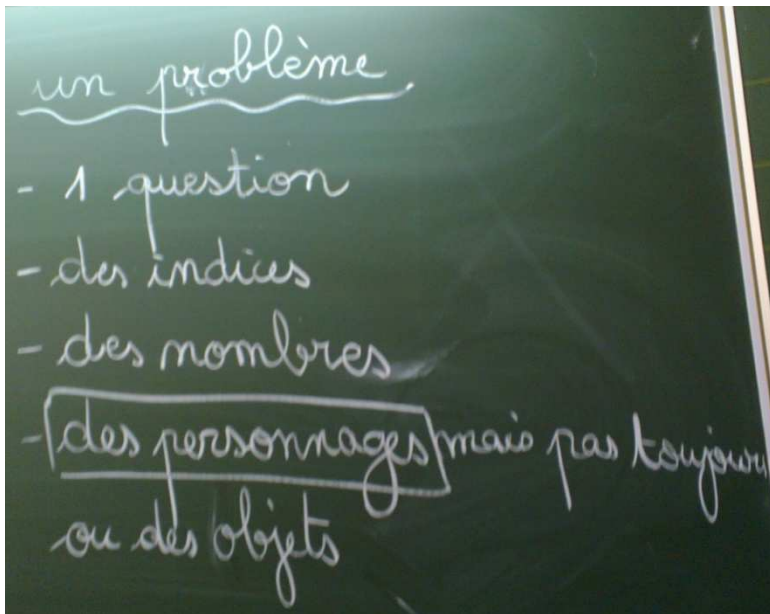 un problème
- 1 question
- des indices
- des nombres
- des personnages mais pas toujours
ou des objets